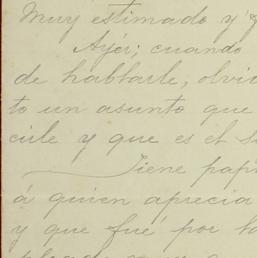 Muy estimado y
Ayér; cuando
de hablarle, olvi
to un asunto que
cirle y que es el s
Tiene pap
á quien aprecia
y que fué por